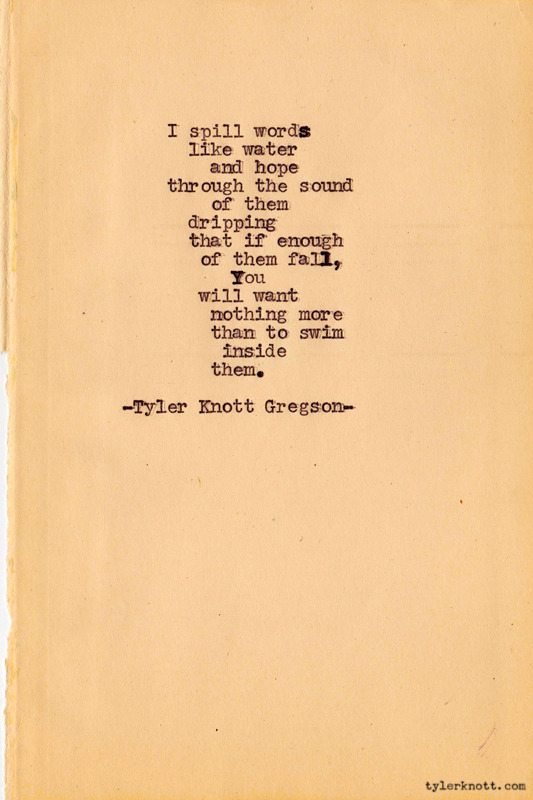 I spill words
like water
and hope
through the sound
of them
dripping
that if enough
of them fall,
You
will want
nothing more
than to swim
inside
them.
-Tyler Knott Gregson-
tylerknott.com